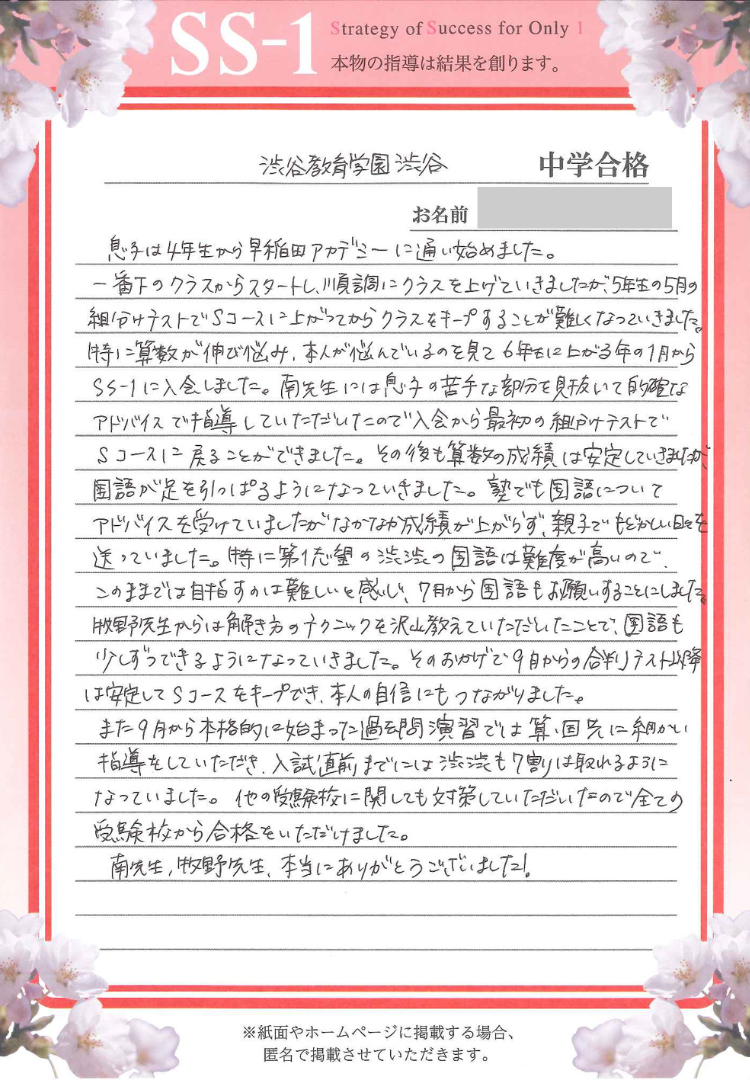 SS-1
Strategy of Success for Only 1
本物の指導は結果を創ります。
渋谷教育学園渋谷 中学合格
お名前
息子は4年生から早稲田アカデミーに通い始めました。
一番下のクラスからスタートし、順調にクラスを上げていきましたが、5年生の5月の
組分けテストでSコースに上がってからクラスをキープすることが難しくなっていきました。
特に算数が伸び悩み、本人が悩んでいるのを見て6年生に上がる年の1月から
SS-1に入会しました。南先生には息子の苦手な部分を見抜いて的確な
アドバイスで指導していただいたので入会から最初の組分けテストで
Sコースに戻ることができました。その後も算数の成績は安定していきましたが、
国語が足を引っぱるようになっていきました。塾でも国語について
アドバイスを受けていましたがなかなか成績が上がらず、親子でもどかしい日々を
送っていました。特に第1志望の渋渋の国語は難度が高いので、
このままでは目指すのは難しいと感じ、7月から国語もお願いすることにしました。
牧野先生からは解き方のテクニックを沢山教えていただいたことで、国語も
少しずつできるようになっていきました。そのおかげで9月からの合判テスト以降
は安定してSコースをキープでき、本人の自信にもつながりました。
また9月から本格的に始まった過去問演習では算・国共に細かい
指導をしていただき、入試直前までには渋渋も7割は取れるように
なっていました。他の受験校に関しても対策していただいたので全ての
受験校から合格をいただけました。
南先生、牧野先生、本当にありがとうございました!
※紙面やホームページに掲載する場合、
匿名で掲載させていただきます。